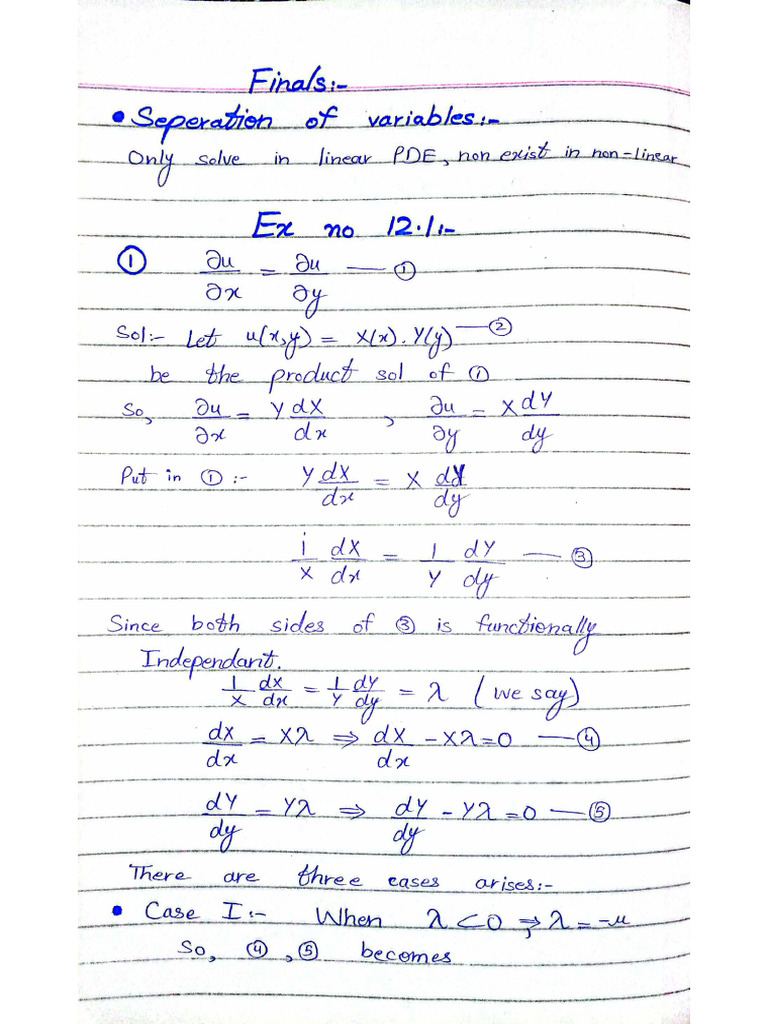 Finals:-
• Seperation of variables:-
Only solve in linear PDE, non exist in non-linear
Ex no 12.1:-
① ∂u/∂x = ∂u/∂y — ①
Sol:- Let u(x,y) = X(x).Y(y) — ②
be the product sol of ①
So, ∂u/∂x = Y dX/dx , ∂u/∂y = X dY/dy
Put in ① :- Y dX/dx = X dY/dy
1/X dX/dx = 1/Y dY/dy — ③
Since both sides of ③ is functionally
Independant.
1/X dX/dx = 1/Y dY/dy = λ (we say)
dX/dx = Xλ ⇒ dX/dx - Xλ = 0 — ④
dY/dy = Yλ ⇒ dY/dy - Yλ = 0 — ⑤
There are three cases arises:-
• Case I:- When λ < 0 ⇒, λ = -u
So, ④, ⑤ becomes